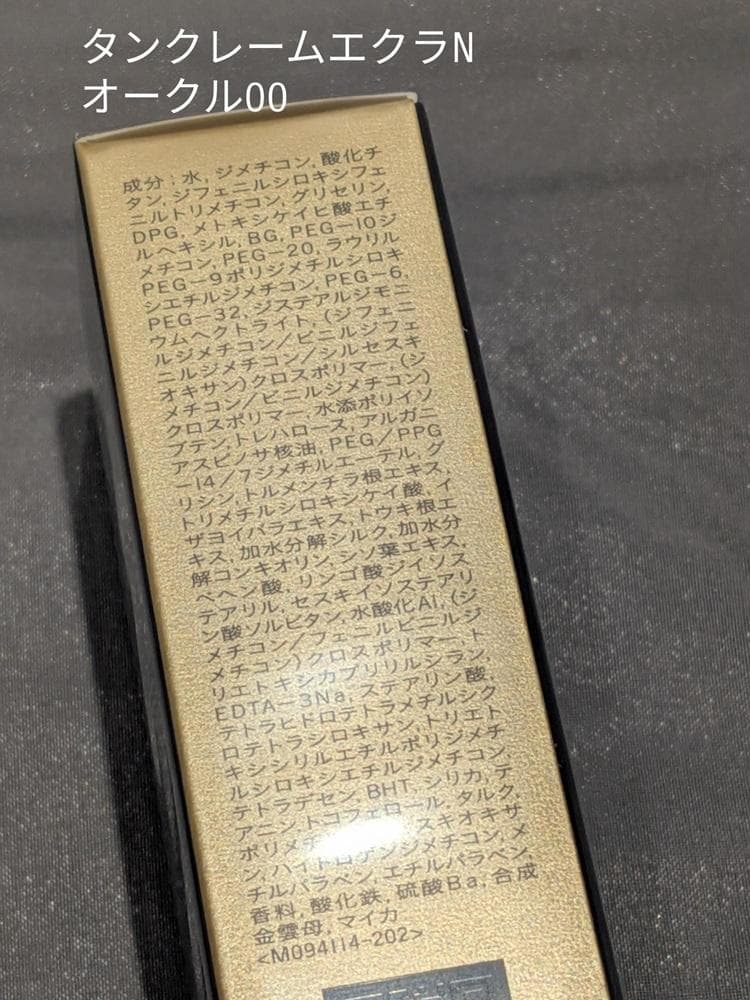 タンクレームエクラN
オークル00
成分：水, ジメチコン, 酸化チ
タン, ジフェニルシロキシフェ
ニルトリメチコン, グリセリン,
DPG, メトキシケイヒ酸エチ
ルヘキシル, BG, PEG-10ジ
メチコン, PEG-20, ラウリル
PEG-9ポリジメチルシロキ
シエチルジメチコン, PEG-6,
PEG-32, ジステアルジモニ
ウムヘクトライト, (ジフェニ
ルジメチコン/ビニルジフェ
ニルジメチコン/シルセスキ
オキサン)クロスポリマー, (ジ
メチコン/ビニルジメチコン)
クロスポリマー, 水添ポリイソ
ブテン, トレハロース, アルガニ
アスピノサ核油, PEG/PPG
-14/7ジメチルエーテル, グ
リシン, トルメンチラ根エキス,
トリメチルシロキシケイ酸, イ
ザヨイバラエキス, トウキ根エ
キス, 加水分解シルク, 加水分
解コンキオリン, シソ葉エキス,
ベヘン酸, リンゴ酸ジイソス
テアリル, セスキイソステアリ
ン酸ソルビタン, 水酸化Al, (ジ
メチコン/フェニルビニルジ
メチコン)クロスポリマー, ト
リエトキシカプリリルシラン,
EDTA-3Na, ステアリン酸,
テトラヒドロテトラメチルシク
ロテトラシロキサン, トリエト
キシシリルエチルポリジメチ
ルシロキシエチルジメチコン,
テトラデセン, BHT, シリカ, テ
アニン, トコフェロール, タルク,
ポリメチ スキオキサ
ン, ハイドロゲンジメチコン, メ
チルパラベン, エチルパラベン,
香料, 酸化鉄, 硫酸Ba, 合成
金雲母, マイカ
<M094114-202>